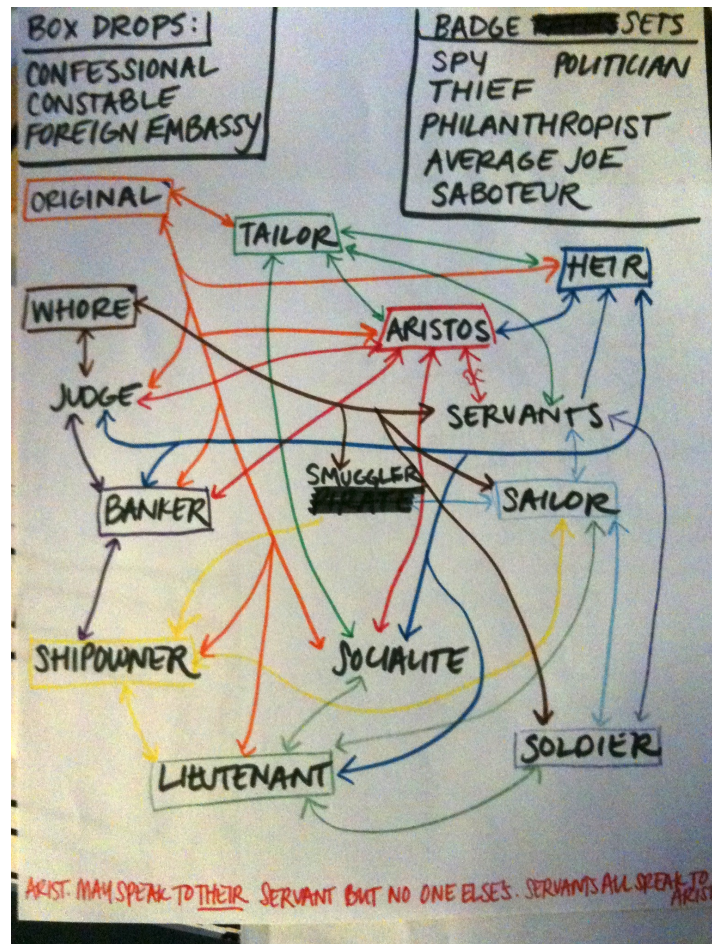 BOX DROPS:
CONFESSIONAL
CONSTABLE
FOREIGN EMBASSY
BADGE SETS
SPY POLITICIAN
THIEF
PHILANTHROPIST
AVERAGE JOE
SABOTEUR
ORIGINAL
TAILOR
HEIR
WHORE
ARISTOS
JUDGE
SERVANTS
SMUGGLER
PIRATE
BANKER
SAILOR
SHIPOWNER
SOCIALITE
LIEUTENANT
SOLDIER
ARIST. MAY SPEAK TO THEIR SERVANT BUT NO ONE ELSE'S. SERVANTS ALL SPEAK TO
ARIST